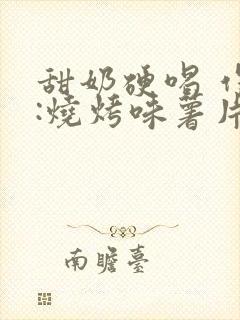 甜奶硬唱
:燒烤味薯片
南瞻臺